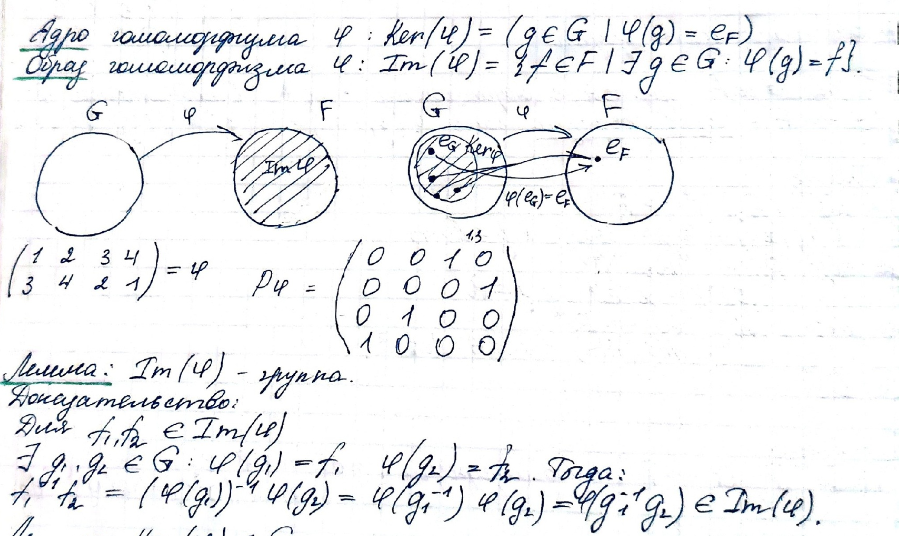 Ядро гомоморфизма φ : Ker(φ) = (g ∈ G | φ(g) = e_F)
Образ гомоморфизма φ : Im(φ) = {f ∈ F | ∃ g ∈ G : φ(g) = f}.
G φ F G φ F
Im φ e_G Ker φ e_F
φ(e_G) = e_F
1,3
(1 2 3 4) = φ
(3 4 2 1)
P_φ =
0 0 1 0
0 0 0 1
0 1 0 0
1 0 0 0
Лемма: Im(φ) - группа.
Доказательство:
Для f₁, f₂ ∈ Im(φ)
∃ g₁, g₂ ∈ G : φ(g₁) = f₁ φ(g₂) = f₂. Тогда:
f₁⁻¹ f₂ = (φ(g₁))⁻¹ φ(g₂) = φ(g₁⁻¹) φ(g₂) = φ(g₁⁻¹ g₂) ∈ Im(φ).